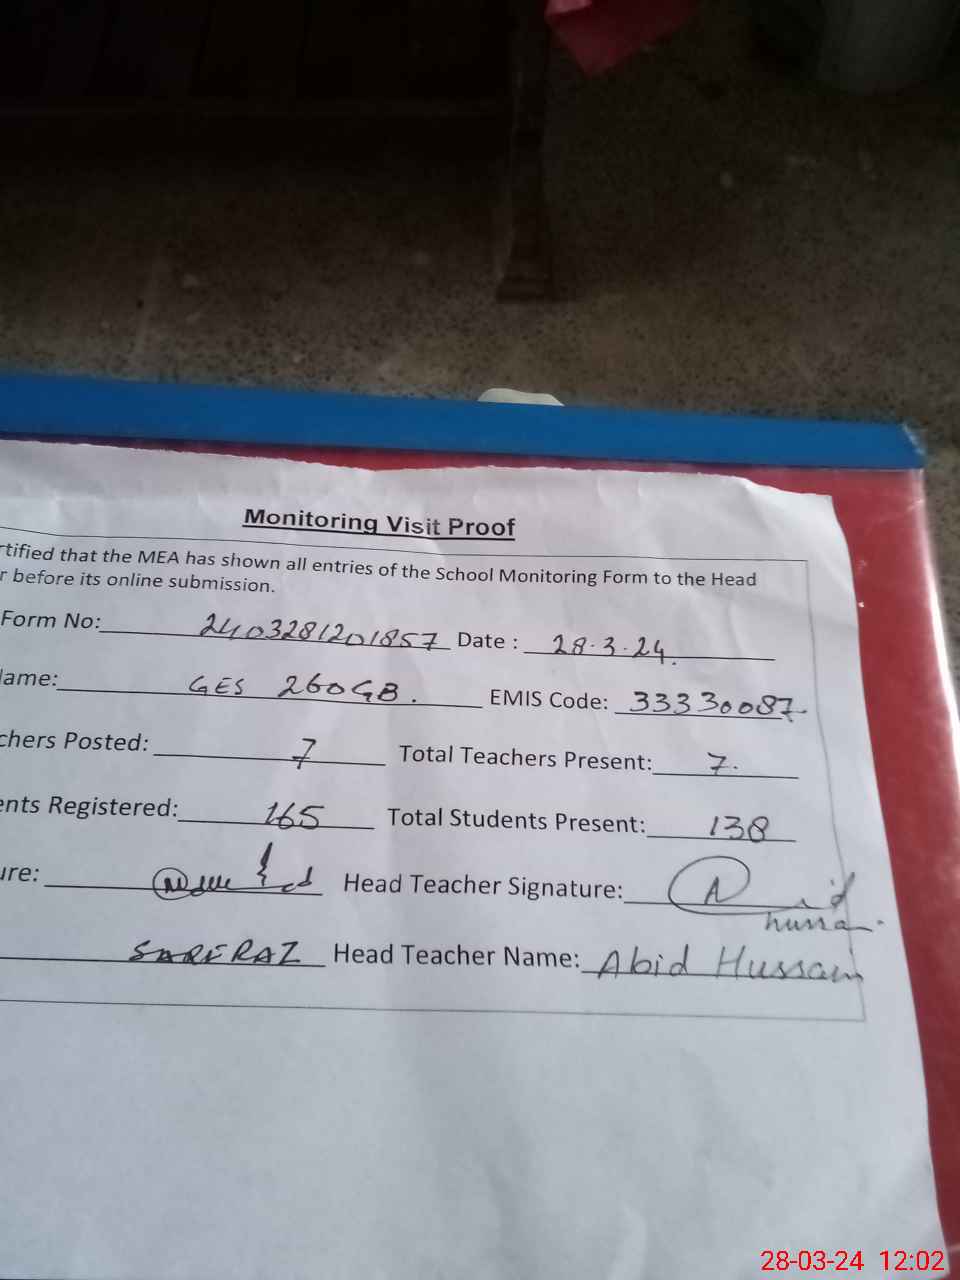 Monitoring Visit Proof
rtified that the MEA has shown all entries of the School Monitoring Form to the Head
r before its online submission.
Form No: 2403281201857 Date : 28.3.24.
lame: GES 260GB. EMIS Code: 33330087
chers Posted: 7 Total Teachers Present: 7.
ents Registered: 165 Total Students Present: 138
ure: Head Teacher Signature:
SARFRAZ Head Teacher Name: Abid Hussain
28-03-24 12:02